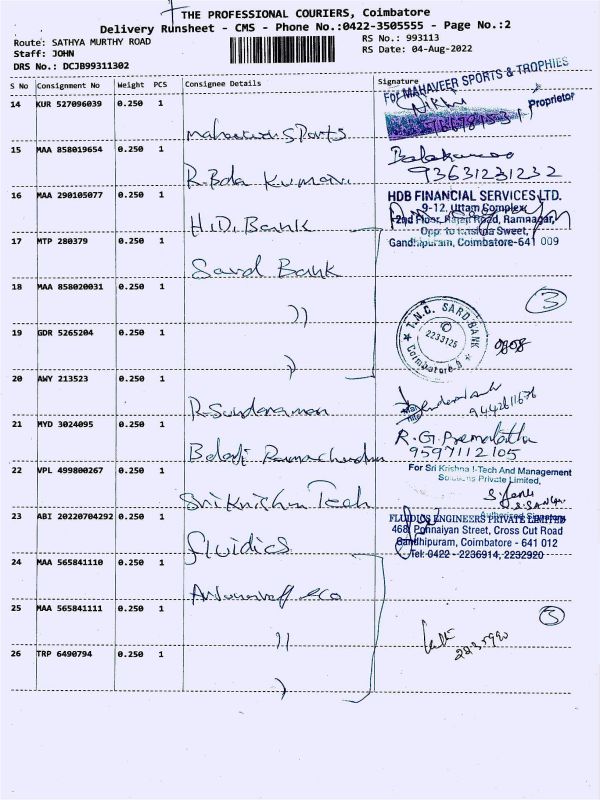 THE PROFESSIONAL COURIERS, Coimbatore
Delivery Runsheet - CMS - Phone No.:0422-3505555 - Page No.:2
Route: SATHYA MURTHY ROAD
RS No.: 993113
Staff: JOHN
RS Date: 04-Aug-2022
DRS No.: DCJB99311302
S No Consignment No Weight PCS Consignee Details Signature
For MAHAVEER SPORTS & TROPHIES
14 KUR 527096039 0.250 1
Proprietor
Sports
15 MAA 858019654 0.250 1
93631231232
R. Bala Kumar
16 MAA 290105077 0.250 1
HDB FINANCIAL SERVICES LTD.
9-12, Uttam Complex
2nd Floor, Road, Ramnagar,
H.D. Bank
Opp. to Sweet,
17 MTP 280379 0.250 1
Gandhipuram, Coimbatore-641 009
Sard Bank
18 MAA 858020031 0.250 1
3
))
T.N.C. SARD BANK
2233125
Coimbatore
19 GDR 5265204 0.250 1
)
20 AWY 213523 0.250 1
9442611636
R. Sundaraman
21 MYD 3024095 0.250 1
R.G. Premalatha
9597112105
Balaji Ramachandran
22 VPL 499800267 0.250 1
For Sri Krishna I-Tech And Management
Solutions Private Limited,
Sri Krishna Tech
Authorised Signatory
23 ABI 20220704292 0.250 1
FLUIDICS ENGINEERS PRIVATE LIMITED
468, Ponnaiyan Street, Cross Cut Road
Gandhipuram, Coimbatore - 641 012
Tel: 0422 - 2236914, 2232920
fluidics
24 MAA 565841110 0.250 1
25 MAA 565841111 0.250 1
5
))
2235990
26 TRP 6490794 0.250 1
)